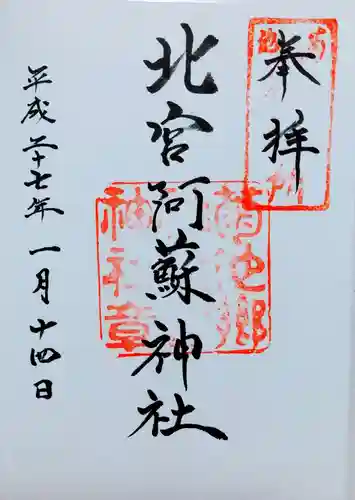 奉拝
北宮阿蘇神社
平成二十七年一月十四日